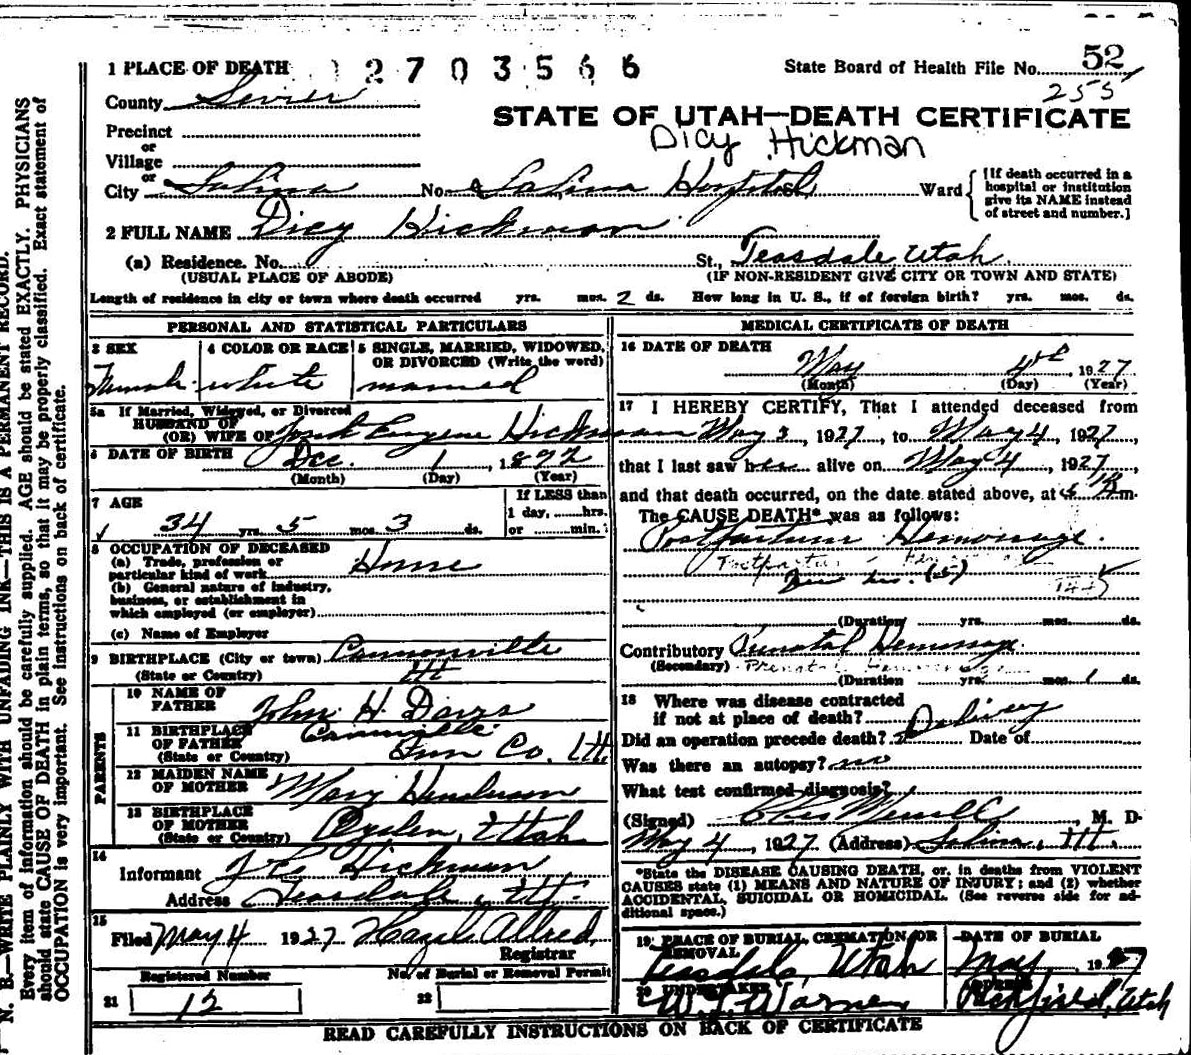 1 PLACE OF DEATH 2703566
State Board of Health File No. 52
255
County Sevier
STATE OF UTAH—DEATH CERTIFICATE
Dicy Hickman
Precinct
or
Village
or
City Salina No. Salina Hospital Ward
[If death occurred in a
hospital or institution
give its NAME instead
of street and number.]
2 FULL NAME Dicy Hickman
(a) Residence. No. St., Teasdale Utah
(USUAL PLACE OF ABODE) (IF NON-RESIDENT GIVE CITY OR TOWN AND STATE)
Length of residence in city or town where death occurred yrs. mos. 2 ds. How long in U. S., if of foreign birth? yrs. mos. ds.
PERSONAL AND STATISTICAL PARTICULARS
3 SEX 4 COLOR OR RACE 5 SINGLE, MARRIED, WIDOWED,
OR DIVORCED (Write the word)
Female white married
5a If Married, Widowed, or Divorced
HUSBAND OF
(OR) WIFE OF Eugene Hickman
6 DATE OF BIRTH Dec. 1, 1892
(Month) (Day) (Year)
7 AGE
34 yrs. 5 mos. 3 ds.
If LESS than
1 day, hrs.
or min.
8 OCCUPATION OF DECEASED
(a) Trade, profession or
particular kind of work Home
(b) General nature of industry,
business, or establishment in
which employed (or employer)
(c) Name of Employer
9 BIRTHPLACE (City or town) Cannonville
(State or Country) Ut
PARENTS
10 NAME OF
FATHER John H Davis
11 BIRTHPLACE
OF FATHER
(State or Country) Co. Ut.
12 MAIDEN NAME
OF MOTHER Mary Henderson
13 BIRTHPLACE
OF MOTHER
(State or Country) Ogden, Utah
14
Informant J E Hickman
Address Teasdale, Ut.
15
Filed May 4 1927 Hazel Allred
Registrar
Registered Number No. of Burial or Removal Permit
21 12 22
MEDICAL CERTIFICATE OF DEATH
16 DATE OF DEATH
May 4th, 1927
(Month) (Day) (Year)
17 I HEREBY CERTIFY, That I attended deceased from
May 3, 1927, to May 4, 1927,
that I last saw her alive on May 4, 1927,
and that death occurred, on the date stated above, at m.
The CAUSE DEATH* was as follows:
Postpartum Hemorrage.
Postpartum
(Duration) yrs. mos. ds.
Contributory Prenatal Hemorrage
(Secondary) Prenatal Hemorrage
(Duration yrs. mos. 1 ds.
18 Where was disease contracted
if not at place of death? Delivery
Did an operation precede death? Date of
Was there an autopsy? no
What test confirmed diagnosis?
(Signed) Merrill, M. D.
May 4, 1927 (Address) Salina, Ut.
*State the DISEASE CAUSING DEATH, or, in deaths from VIOLENT
CAUSES state (1) MEANS AND NATURE OF INJURY; and (2) whether
ACCIDENTAL, SUICIDAL OR HOMICIDAL. (See reverse side for ad-
ditional space.)
19 PLACE OF BURIAL, CREMATION OR
REMOVAL
DATE OF BURIAL
Teasdale, Utah May, 1927
20 UNDERTAKER ADDRESS
Richfield, Utah
READ CAREFULLY INSTRUCTIONS ON BACK OF CERTIFICATE
N. B.—WRITE PLAINLY WITH UNFADING INK—THIS IS A PERMANENT RECORD.
Every item of information should be carefully supplied. AGE should be stated EXACTLY. PHYSICIANS
should state CAUSE OF DEATH in plain terms, so that it may be properly classified. Exact statement of
OCCUPATION is very important. See instructions on back of certificate.